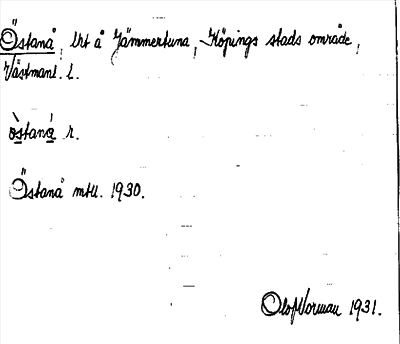 Östanå, lht å Jämmertuna, Köpings stads område,
Västmanl. l.
òstaná r.
Östanå mtll. 1930.
Olof Norman 1931.